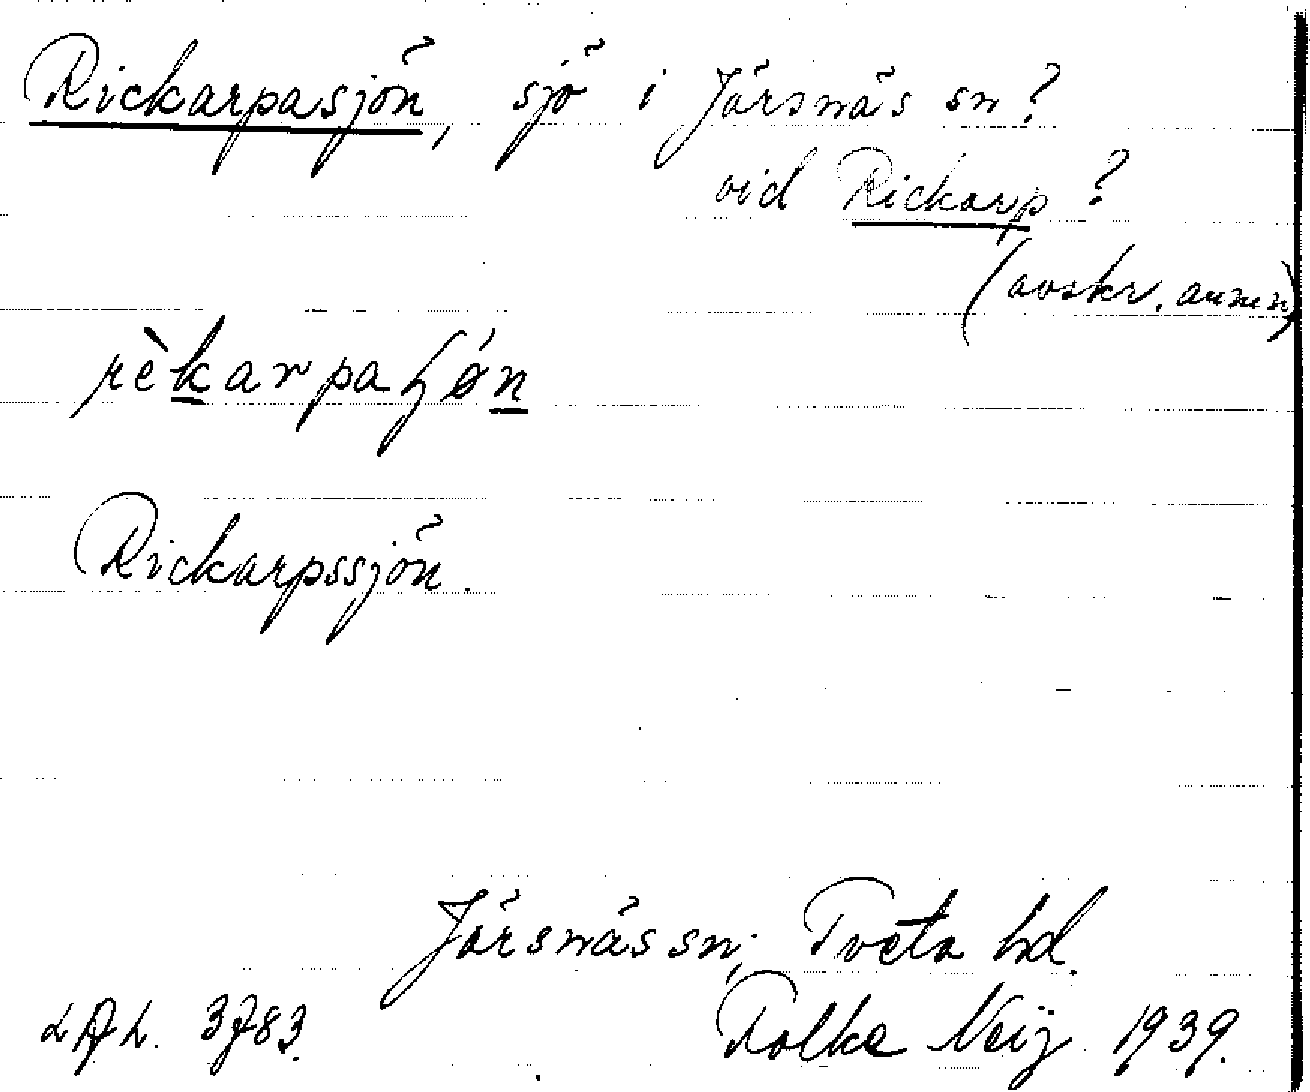 Rickarpasjön, sjö i Järsnäs sn?
vid Rickarp?
(avskr. anm)
rèkarpaɧǿn
Rickarpssjön.
Järsnäs sn; Tveta hd.
LAL. 3783. Folke Neij 1939.